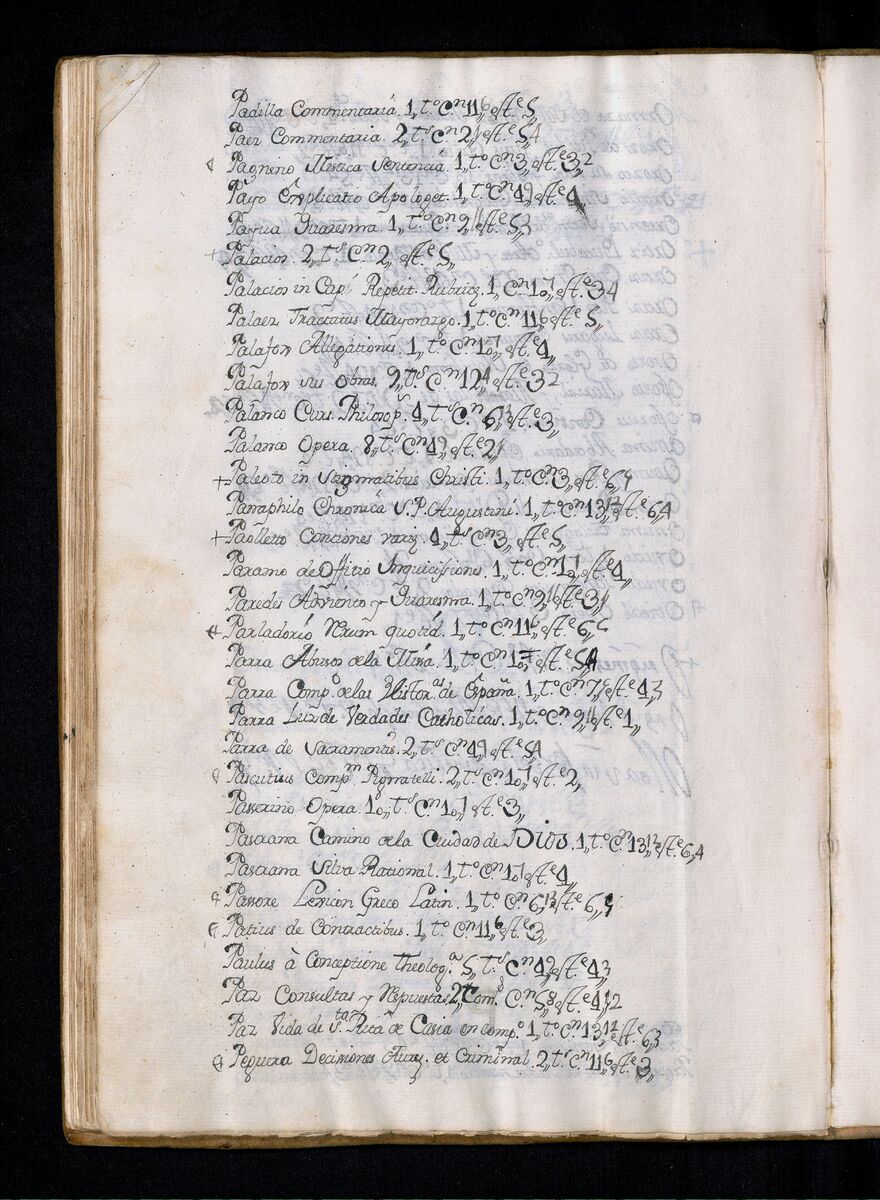 Padilla Commentariâ 1,, t.º C.n 11,,6 est.e 5,,
Paez Commentaria. 2,, t.s C.n 2,,1 est.e 5,,4
Pagnino Mistica Sentenciâ 1,, t.º C.n 3,, est.e 3,,2
Payo Explicatio Apologet. 1,, t.º C.n 4,,9 est.e 4,,
Quaresma. 1,, t.º C.n 9,,11 est.e 5,,3
+ Palacios. 2,, t.s C.n 2,, est.e 5,,
Palacios in Cap. Repetit. Rubricę. 1,, C.n 1o,,7 est.e 3,,4
Palaez Tractatus Mayorazgo. 1,, t.º C.n 11,,6 est.e 5,,
Palafox Allegationis. 1,, t.º C.n 1o,,7 est.e 4,,
Palafox sus Obras. 9,, t.s C.n 12,,4 est.e 3,,2
Palanco Curs. Philosop. 4,, t.s C.n 6,,13 est.e 3,,
Palanco Opera. 8,, t.s C.n 4,,9 est.e 2,,1
+ Paleoto in Stigmatibus Christi. 1,, t.º C.n 3,, est.e 6,,
Panaphilo Chronicâ S. P. Augustini. 1,, t.º C.n 13,,12 est.e 6,,4
+ Paolletto Canciones varię. 4,, t.s C.n 3,, est.e 5,,
Paramo de Offitio Inquicisiones. 1,, t.º C.n 1o,,7 est.e 4,,
Paredes Adviento y Quaresma. 1,, t.º C.n 9,,16 est.e 3,,1
Parladorio Rerum quotid. 1,, t.º C.n 11,,6 est.e 6,,5
Parra Abusos de la Missâ. 1,, t.º C.n 1o,,7 est.e 5,,4
Parra Comp.º de las Histor.as de España. 1,, t.º C.n 7,, est.e 4,,3
Parra Luz de Verdades Catholicas. 1,, t.º C.n 9,,11 est.e 1,,
Parra de Sacramentis. 2,, t.s C.n 4,,9 est.e 5,,4
Pascutius Comp.m Pignatelli. 2,, t.s C.n 1o,,7 est.e 2,,
Passerino Opera. 1o,, t.s C.n 1o,,7 est.e 3,,
Camino de la Ciudad de DIOS. 1,, t.º C.n 13,,12 est.e 6,,4
Silva Rational. 1,, t.º C.n 1o,,7 est.e 4,,
Passore Lexicon Greco Latin. 1,, t.º C.n 6,,13 est.e 6,,
Patius de Contractibus. 1,, t.º C.n 11,,6 est.e 3,,
Paulus â Conceptione Theolog.a 5,, t.s C.n 4,,9 est.e 4,,3
Paz Consultas y Respuestas. 2,, Tom.s C.n 5,,8 est.e 4,,2
Paz Vida de S.ta Rita de Casia en comp.º 1,, t.º C.n 13,,12 est.e 6,,3
Peguera Decisiones Aureę. et Criminal. 2,, t.s C.n 11,,6 est.e 3,,